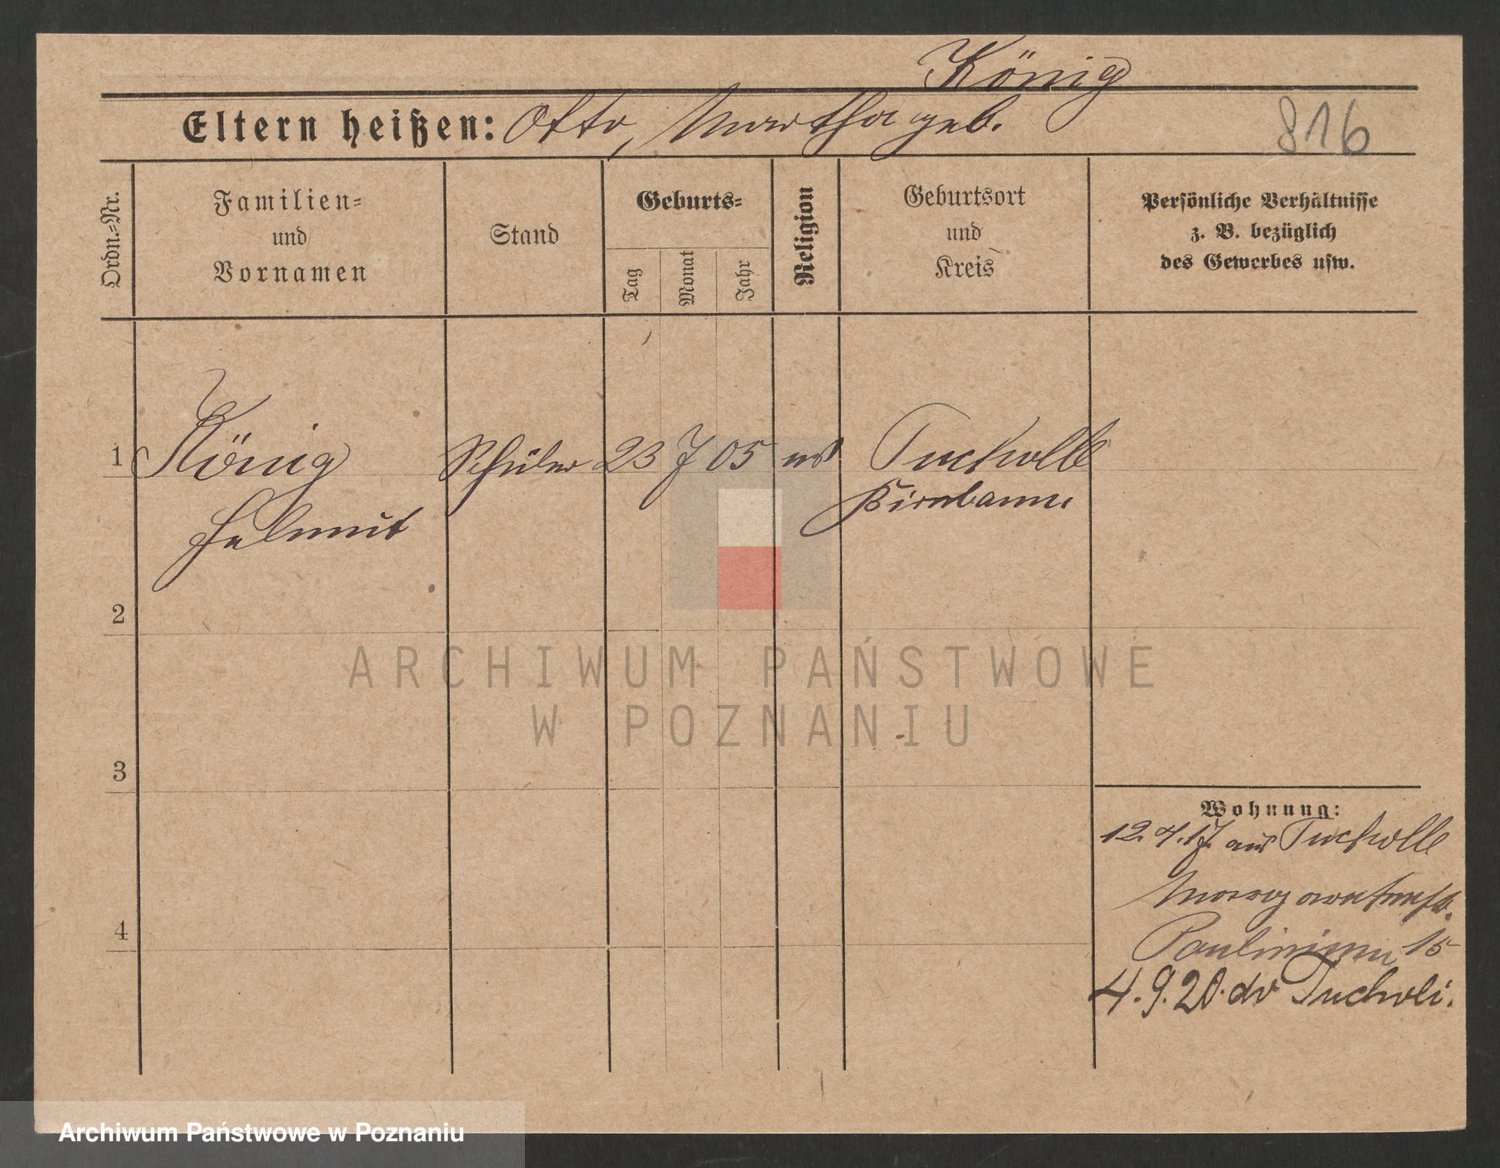 König
Eltern heißen: Otto, Martha geb.
816
Ordn.-Nr.
Familien-
und
Vornamen
Stand
Geburts-
Tag
Monat
Jahr
Religion
Geburtsort
und
Kreis
Persönliche Verhältnisse
z. B. bezüglich
des Gewerbes usw.
1 König Schüler 23 7 05 ev Tucholle
Helmut Birnbaum
2
3
4
Wohnung:
12.4.17 aus Tucholle
Paulinum 15
4.9.20. do Tucholi.
ARCHIWUM PAŃSTWOWE
W POZNANIU
Archiwum Państwowe w Poznaniu